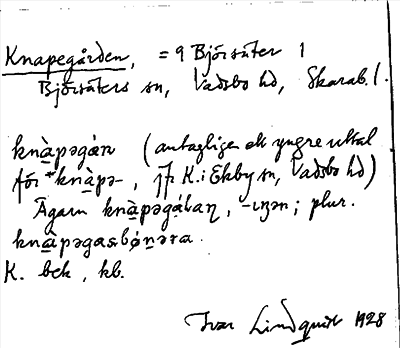 Knapegården, = 9 Björsäter 1
Björsäters sn, Vadsbo hd, Skarab. l.
knàpəgán (antagligen ett yngre uttal
för *knàpə-, jfr K. i Ekby sn, Vadsbo hd)
Ägarn knàpəgáłaɳ, -ɩʒən; plur.
knàpəgasbǿnəra.
K. bek, kb.
Ivar Lindquist 1928